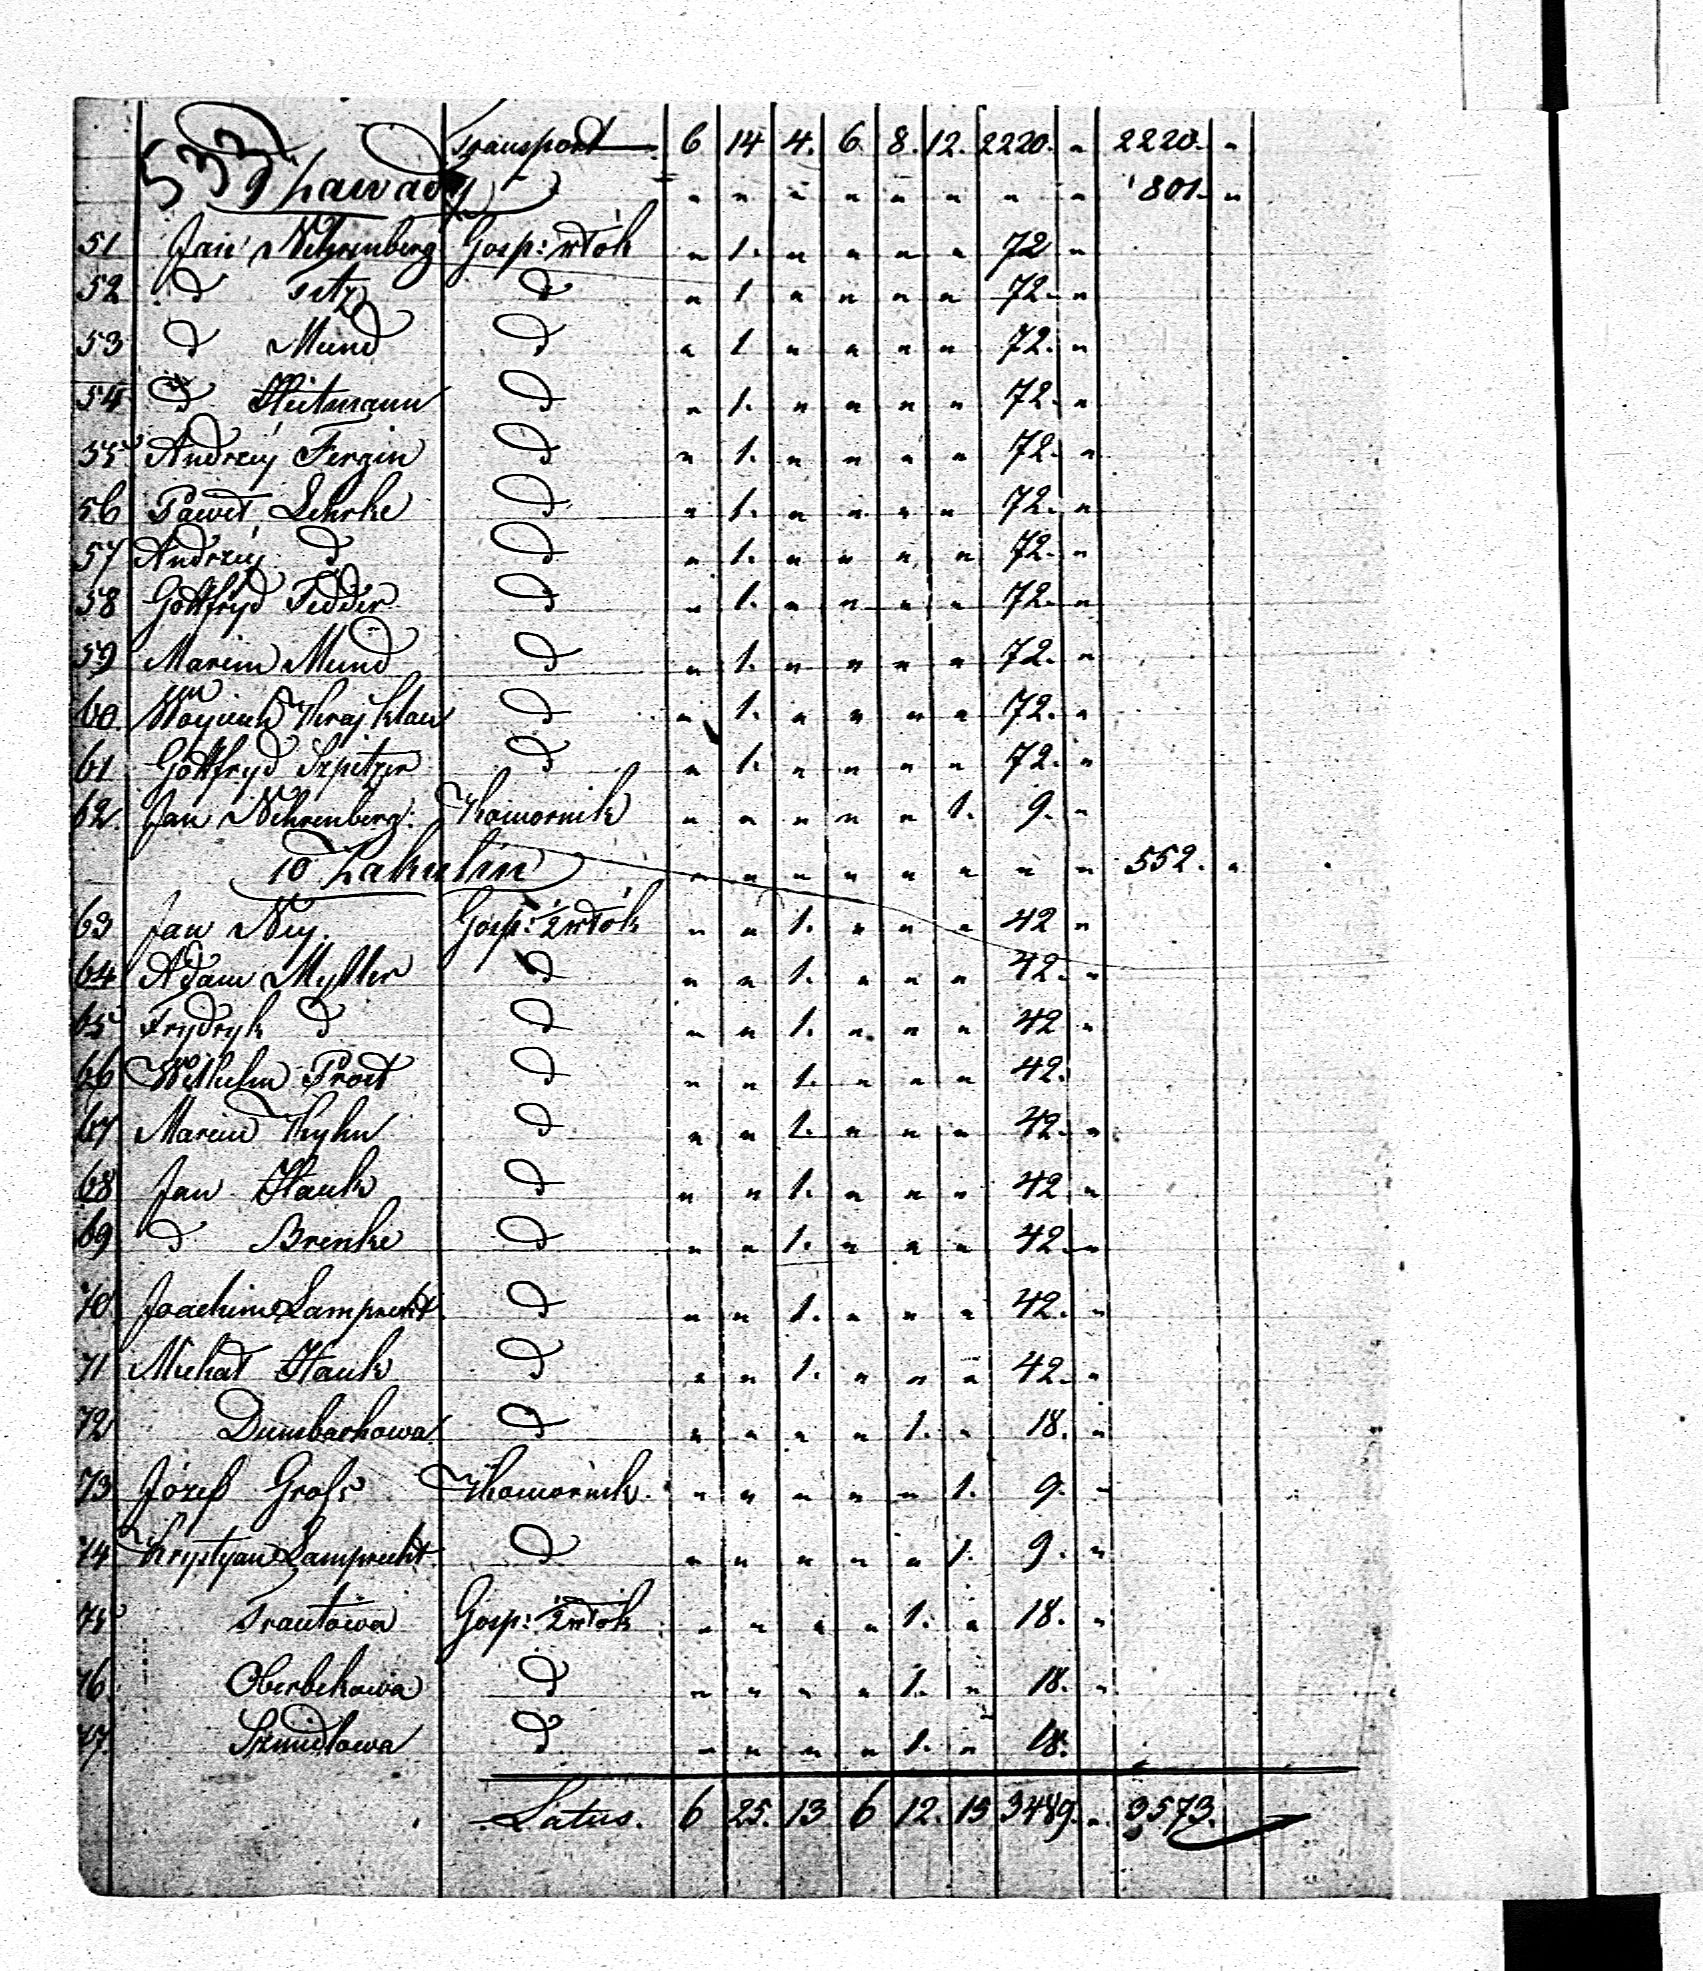 Transport 6 14 4. 6. 8. 12. 2220. " 2220. "
533 9 Zawady " " " " " " " " 801. "
51 Jan Nehrenberg Gosp: włók " 1. " " " " 72 "
52 d Tetz d " 1 " " " " 72. "
53 d Mund d " 1 " " " " 72. "
54 d Heitmann d " 1. " " " " 72. "
55 Andrzej Fergin d " 1. " " " " 72. "
56 Paweł Lehrke d " 1. " " " " 72. "
57 Andrzej d d " 1. " " " " 72. "
58 Gottfryd Fedder d " 1. " " " " 72. "
59 Marcin Mund d " 1. " " " " 72. "
60. Woyciech d " 1. " " " " 72. "
61 Gottfryd Szpitzer d " 1. " " " " 72. "
62. Jan Nehrenberg: Komornik " " " " " 1. 9. "
10 Zakulin " " " " " " " " 552. "
63 Jan Ney. Gosp: ½ włók " " 1. " " " 42 "
64 Adam Myller d " " 1. " " " 42. "
65 Frydryk d d " " 1. " " " 42 "
66 Wilhelm Prost d " " 1. " " " 42.
67 Marcin Kyhn d " " 1. " " " 42. "
68 Jan Hauk d " " 1. " " " 42 "
69 d Brenke d " " 1. " " " 42. "
70 Joachim Lamprecht d " " 1. " " " 42. "
71 Michał Hauk d " " 1. " " " 42. "
72 Dumbarkowa d " " " " 1. " 18. "
73 Józef Grofs Komornik. " " " " " 1. 9. "
74 Krystyan Lamprecht d " " " " " 1. 9. "
75 Trautowa Gosp: ½ włók " " " " 1. " 18. "
76 Oberbekowa d " " " " 1. " 18. "
77. Szmidtowa d " " " " 1. " 18.
Latus. 6 25. 13 6 12. 15 3489. " 3573.